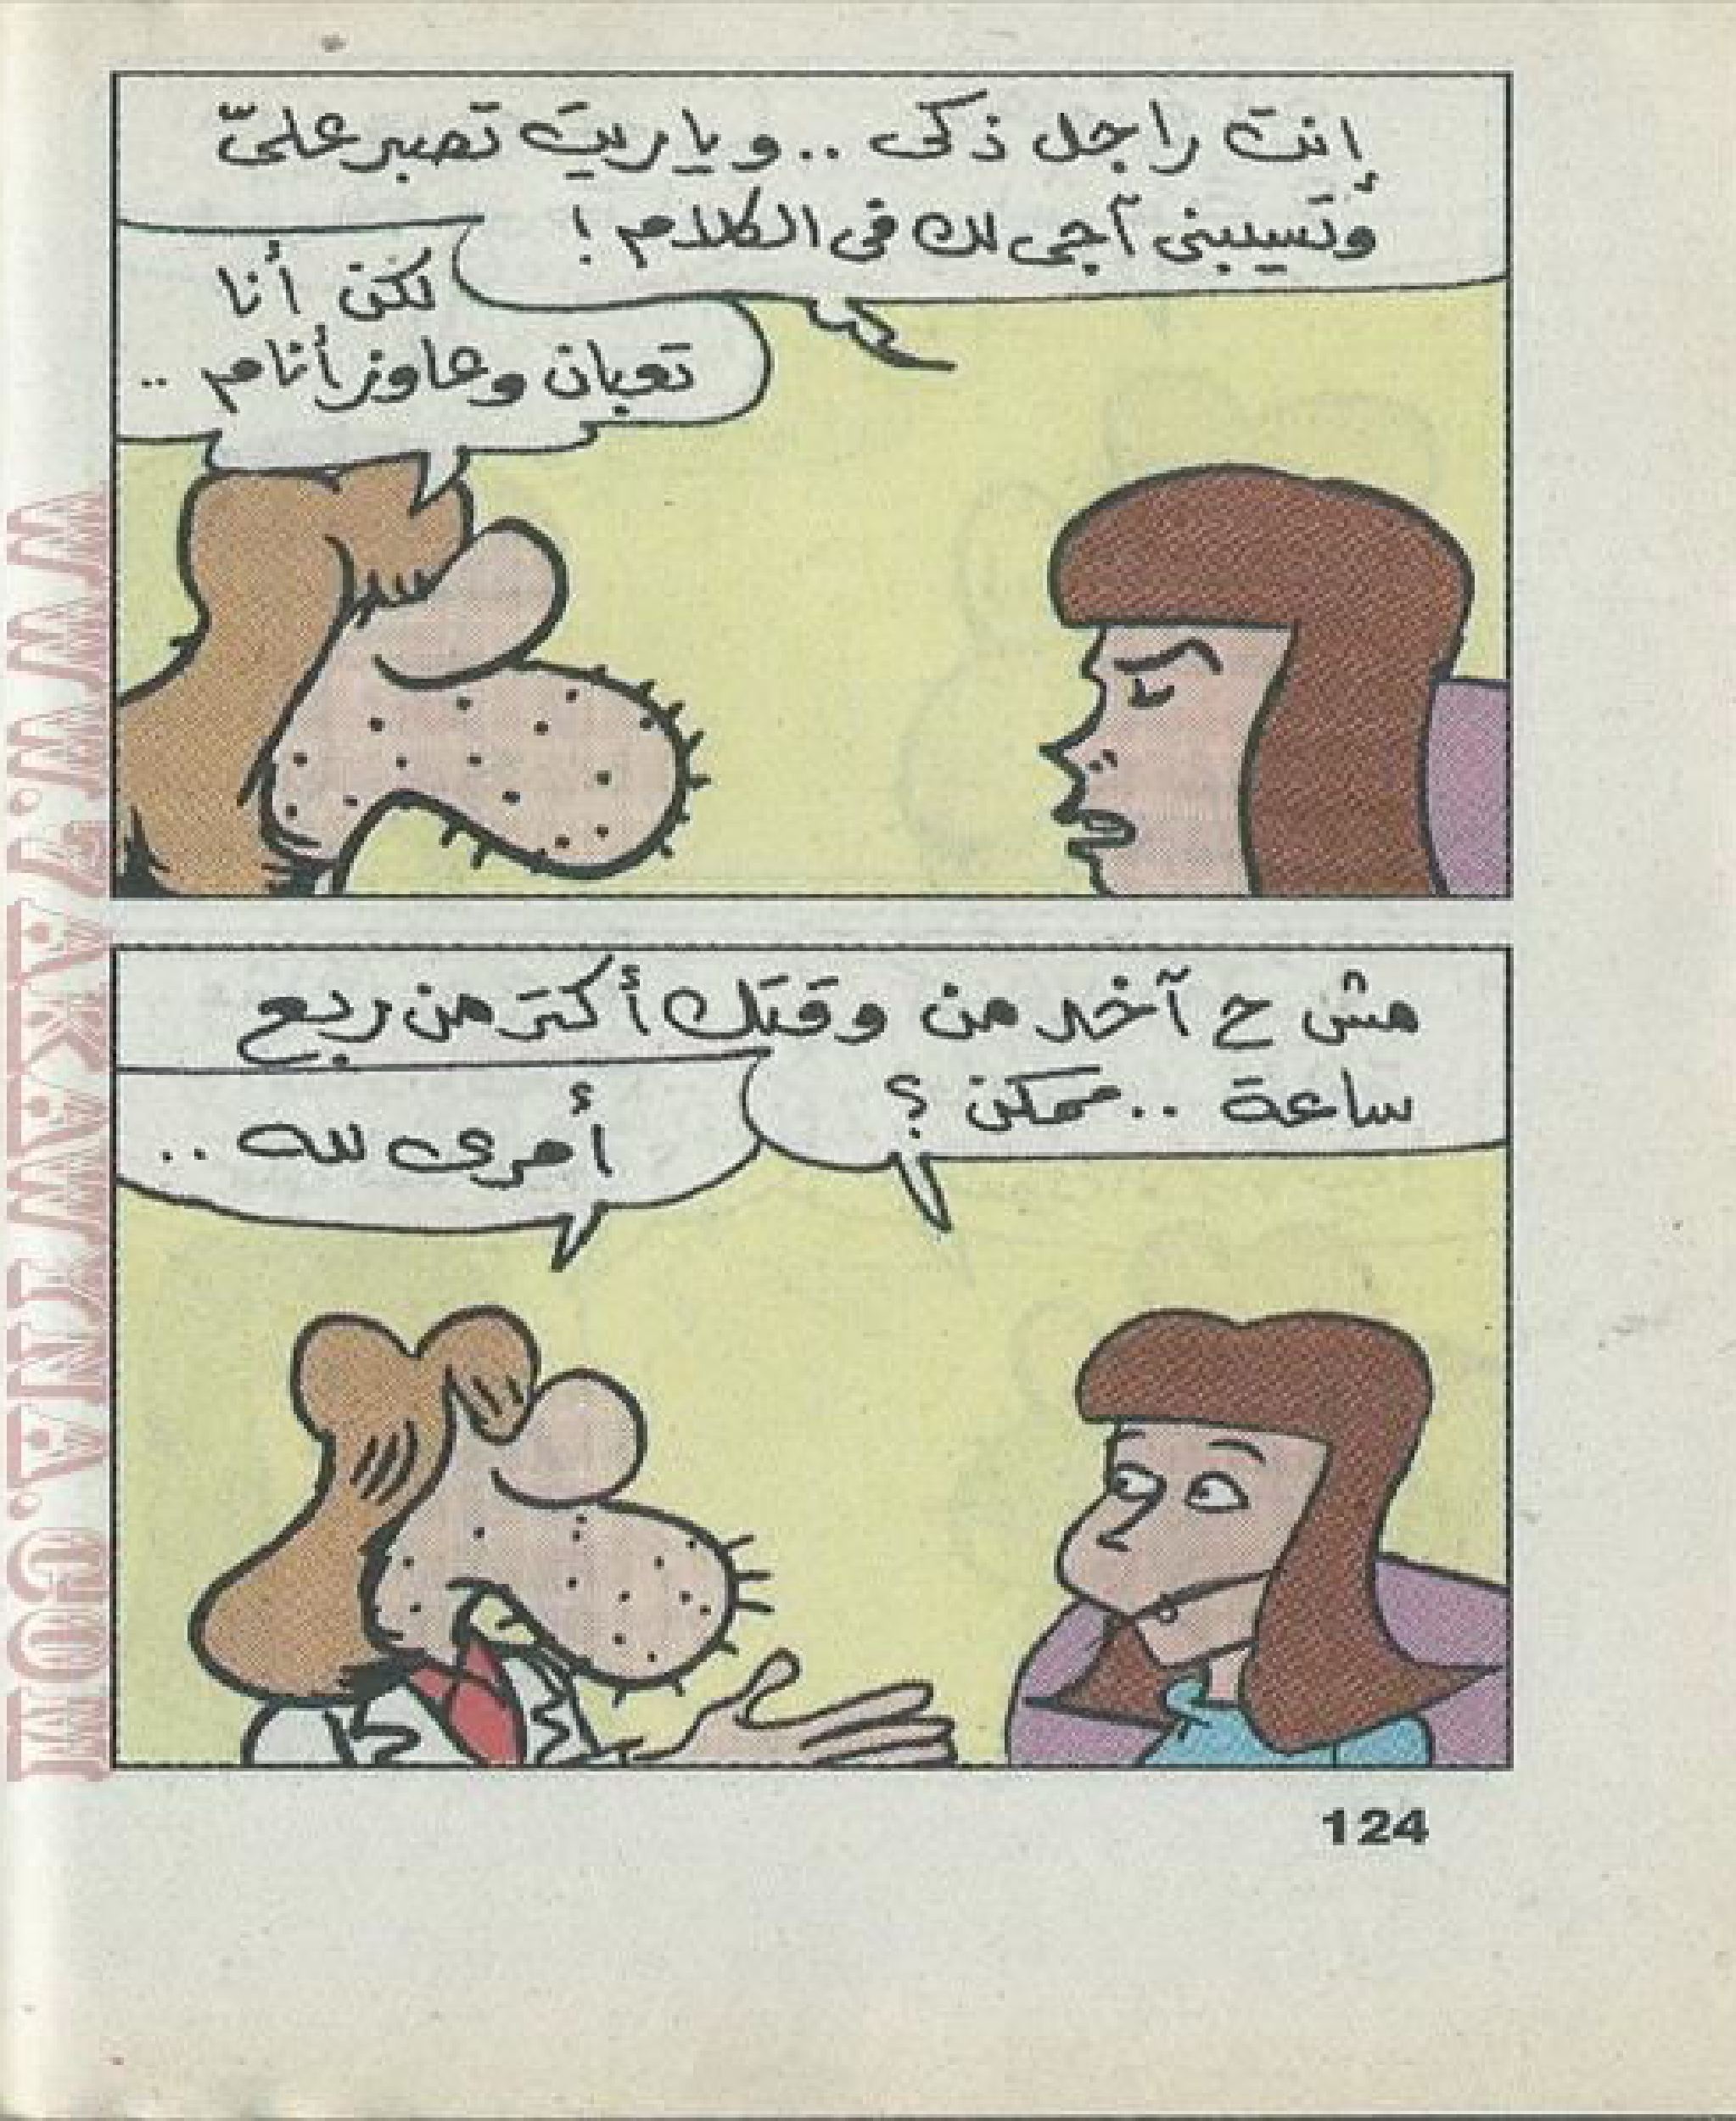 إنت راجل ذكى .. و ياريت تصبر علىّ
وتسيبنى آجى لك فى الكلام !
لكن أنا
تعبان وعاوز أنام ..
مش ح آخد من وقتك أكتر من ربع
ساعة .. ممكن ؟
أمرى لله ..
124
WWW.7AKAWINA.COM